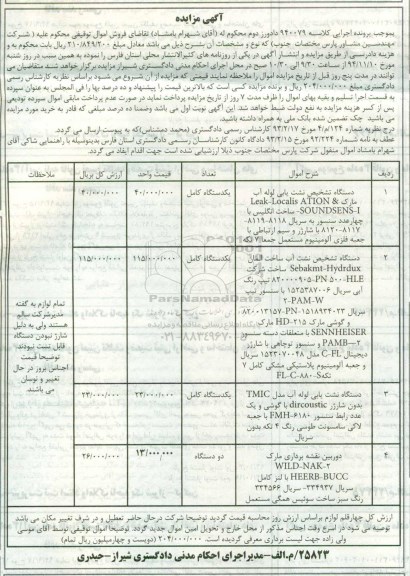 آگهی مزایده
بموجب پرونده اجرایی کلاسه ۹۴۰۰۷۹ دادورز دوم محکوم له (آقای شهرام باممشاد) تقاضای فروش اموال توقیفی محکوم علیه (شرکت
مهندسین مشاور پارس مختصات جنوب) که نوع و مشخصات آن بشرح ذیل می باشد معادل مبلغ ۲۱۰/۸۴۹/۳۰۰ ریال بابت محکوم به و
هزینه دادرسی از طریق مزایده و انتشار آگهی در یکی از روزنامه های کثیرالانتشار محلی استان فارس را نموده به همین سبب در روز شنبه
مورخ ۹۴/۱۱/۱۰ از ساعت ۹/۳۰ الی ۱۰/۳۰ صبح در محل اجرای احکام مدنی دادگستری شیراز مزایده برگزار خواهد شد متقاضیان می
توانند در مدت پنج روز قبل از تاریخ مزایده اموال را ملاحظه نمایند قیمتی که مزایده از آن شروع می شود براساس نظریه کارشناس رسمی
دادگستری مبلغ ۲۰۴/۰۰۰/۰۰۰ ریال و برنده مزایده کسی است که بالاترین قیمت را پیشنهاد و ده درصد بها را فی المجلس به عنوان سپرده
به قسمت اجرا تسلیم و بقیه بهای اموال را ظرف مدت ۷ روز از تاریخ مزایده پرداخت نماید در صورت عدم پرداخت مابقی اموال سپرده تودیعی
پس از کسر هزینه مزایده به نفع دولت ضبط خواهد شد این آگهی نوبت اول می باشد وضمنا ده درصد مبلغی که قادر به خرید مورد مزایده
می باشید چک تضمین شده بانک ملی به همراه داشته باشید.
درج نظریه شماره ۴/م/۱۲۴ مورخ ۹۳/۲/۱۷ کارشناس رسمی دادگستری (محمد دمشناس)که به پیوست ارسال می گردد.
عطف به نامه شماره ۹۲/۲۲۴ مورخ ۹۳/۱/۱۵ دادگاه کانون کارشناسان رسمی دادگستری استان فارس بدینوسیله با راهنمایی شاکی آقای
شهرام باممشاد اموال منقول شرکت پارس مختصات جنوب ذیلا ارزشیابی شده است جهت اقدام ایفاد می گردد.
ردیف شرح اموال تعداد قیمت واحد ارزش کل بریال ملاحظات
۱ دستگاه تشخیص نشت یابی لوله آب یکدستگاه کامل ۴۰/۰۰۰/۰۰۰ ۴۰/۰۰۰/۰۰۰
مارک Leak-Localis ATION &
SOUNDSENS-I- ساخت انگلیس با
چهارعدد سنسور به سریال ۸۱۱۸-۸۱۱۹-
۸۱۱۷-۸۱۲۰ با شارژر و سیم ارتباطی با
جعبه فلزی آلومینیوم مستعمل جمعا ۷ تکه
۲ دستگاه تشخیص نشت آب ساخت آلمان یکدستگاه کامل ۱۱۵/۰۰۰/۰۰۰ ۱۱۵/۰۰۰/۰۰۰
Sebakmt-Hydrdux ساخت شرکت
HLE-۵۰۰ PN-۸۲۰۰۰۰۹۰۵ تیپ رنگ
آبی سریال ۱۵۲۵۳۸۷۰۰۶ با سنسور تیپ
PAM-W-۲
سریال ۱۵۱۸۹۳۴۰۲۳-PN-۸۲۰۰۱۳۱۵۷
و گوشی مارک HD-۲۱۵ مارک
SENNHEISER با متعلقات دسته سنسور
PAMB-۲ و سنسور توچاهی با شارژر
دیجیتال C-FL مدل ۱۵۲۳۷۰۰۴۸ سریال
و جعبه آلومینیوم پلاستیکی مشکی کامل ۷
تکه FL-C-۸۸۰S
تمام لوازم به گفته
مدیرشرکت سالم
هستند ولی به دلیل
شارژ نبودن دستگاه
قابل تست نبودند.
توضیحا قیمت
اجناس بروز در حال
تغییر و نوسان
می باشند
۳ دستگاه نشت یابی لوله آب مدل TMIC یکدستگاه کامل ۲۳/۰۰۰/۰۰۰ ۲۳/۰۰۰/۰۰۰
بدون شارژر dircoustic با گوشی و یک
عدد رابط سنسور FMH-۶۱۸۰ با جعبه
لاکی سامسونت طوسی رنگ ۴ تکه بدون
سریال
۴ دوربین نقشه برداری مارک دو دستگاه ۱۳/۰۰۰/۰۰۰ ۲۶/۰۰۰/۰۰۰
WILD-NAK-۲
HEERB-BUCC با لنز کامل
سریال ۳۳۴۹۳۷- سریال ۳۳۴۵۶۶
رنگ سبز ساخت سوئیس همگی مستعمل
ارزش کل چهارقلم لوازم براساس ارزش روز محاسبه قیمت گردید توضیحا شرکت درحال حاضر تعطیل و در شرف تغییر مکان می باشد
توصیه می شود در اسرع وقت اجناس مذکور از محل خارج و تحویل امین اموال جدید گردد. توضیحا اموال توقیفی توسط آقای موسی
ولی زاده جهت لیست برداری معرفی گردیده است. ۲۰۴/۰۰۰/۰۰۰ (دویست و چهارمیلیون ریال تمام)
۲۵۸۲۳/م.الف-مدیراجرای احکام مدنی دادگستری شیراز-حیدری
ParsNamadData
۰۲۱-۸۸۳۴۹۶۷۰